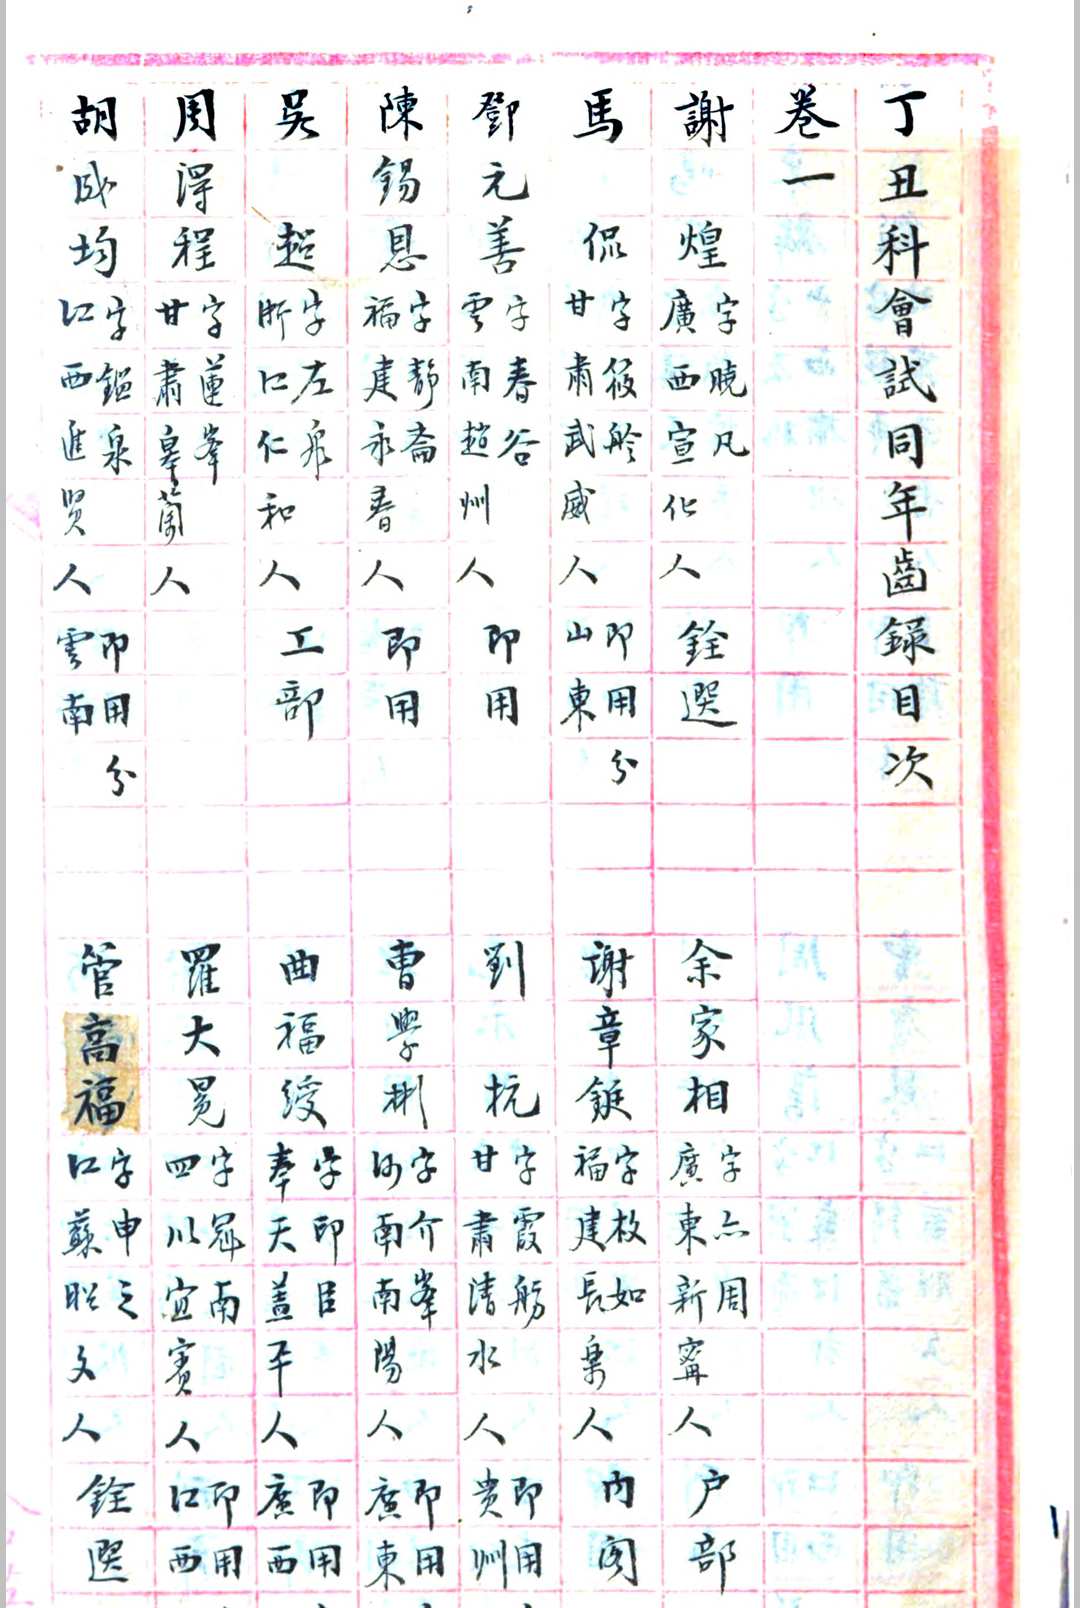 丁丑科會試同年齒錄目次
卷一
謝煌 字曉凡 廣西宣化人 銓選
余家相 字亦周 廣東新寧人 户部
馬侃 字筱舲 甘肅武威人 即用分山東
謝章鋌 字枚如 福建長樂人 内閣
鄧元善 字春谷 雲南趙州人 即用
劉杭 字霞舫 甘肅清水人 即用貴州
陳錫恩 字靜齋 福建永春人 即用
曹學彬 字介峯 河南南陽人 即用廣東
吳超 字左泉 浙江仁和人 工部
曲福綬 字即臣 奉天蓋平人 即用廣西
周得程 字蓮峯 甘肅皋蘭人
羅大冕 字冠南 四川宜賓人 即用江西
胡成均 字鑑泉 江西進賢人 即用分雲南
管高福 字申之 江蘇人 銓選